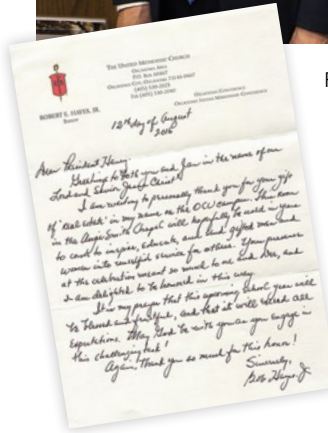 THE UNITED METHODIST CHURCH
OKLAHOMA AREA
P.O. BOX 60467
OKLAHOMA CITY, OKLAHOMA 73146-0467
(405) 530-2025
FAX (405) 530-2040
ROBERT E. HAYES, JR.
BISHOP
OKLAHOMA CONFERENCE
OKLAHOMA INDIAN MISSIONARY CONFERENCE
12th day of August
Dear President Henry,
Greetings to both you and Jan in the name of our
Lord and Savior Jesus Christ!
I am writing to personally thank you for your gift
of "real estate" in my name on the OCU campus. This room
in the Angie Smith Chapel will hopefully be used in years
to come to inspire, educate, and send gifted men and
women into unselfish service for others. Your presence
at the celebration meant so much to me and Dee, and
I am delighted to be honored in this way.
It is my prayer that this upcoming school year will
be blessed and fruitful, and that it will exceed all
expectations. May God be with you as you engage in
this challenging task!
Again, thank you so much for this honor!
Sincerely,
Bob Hayes, Jr.
F